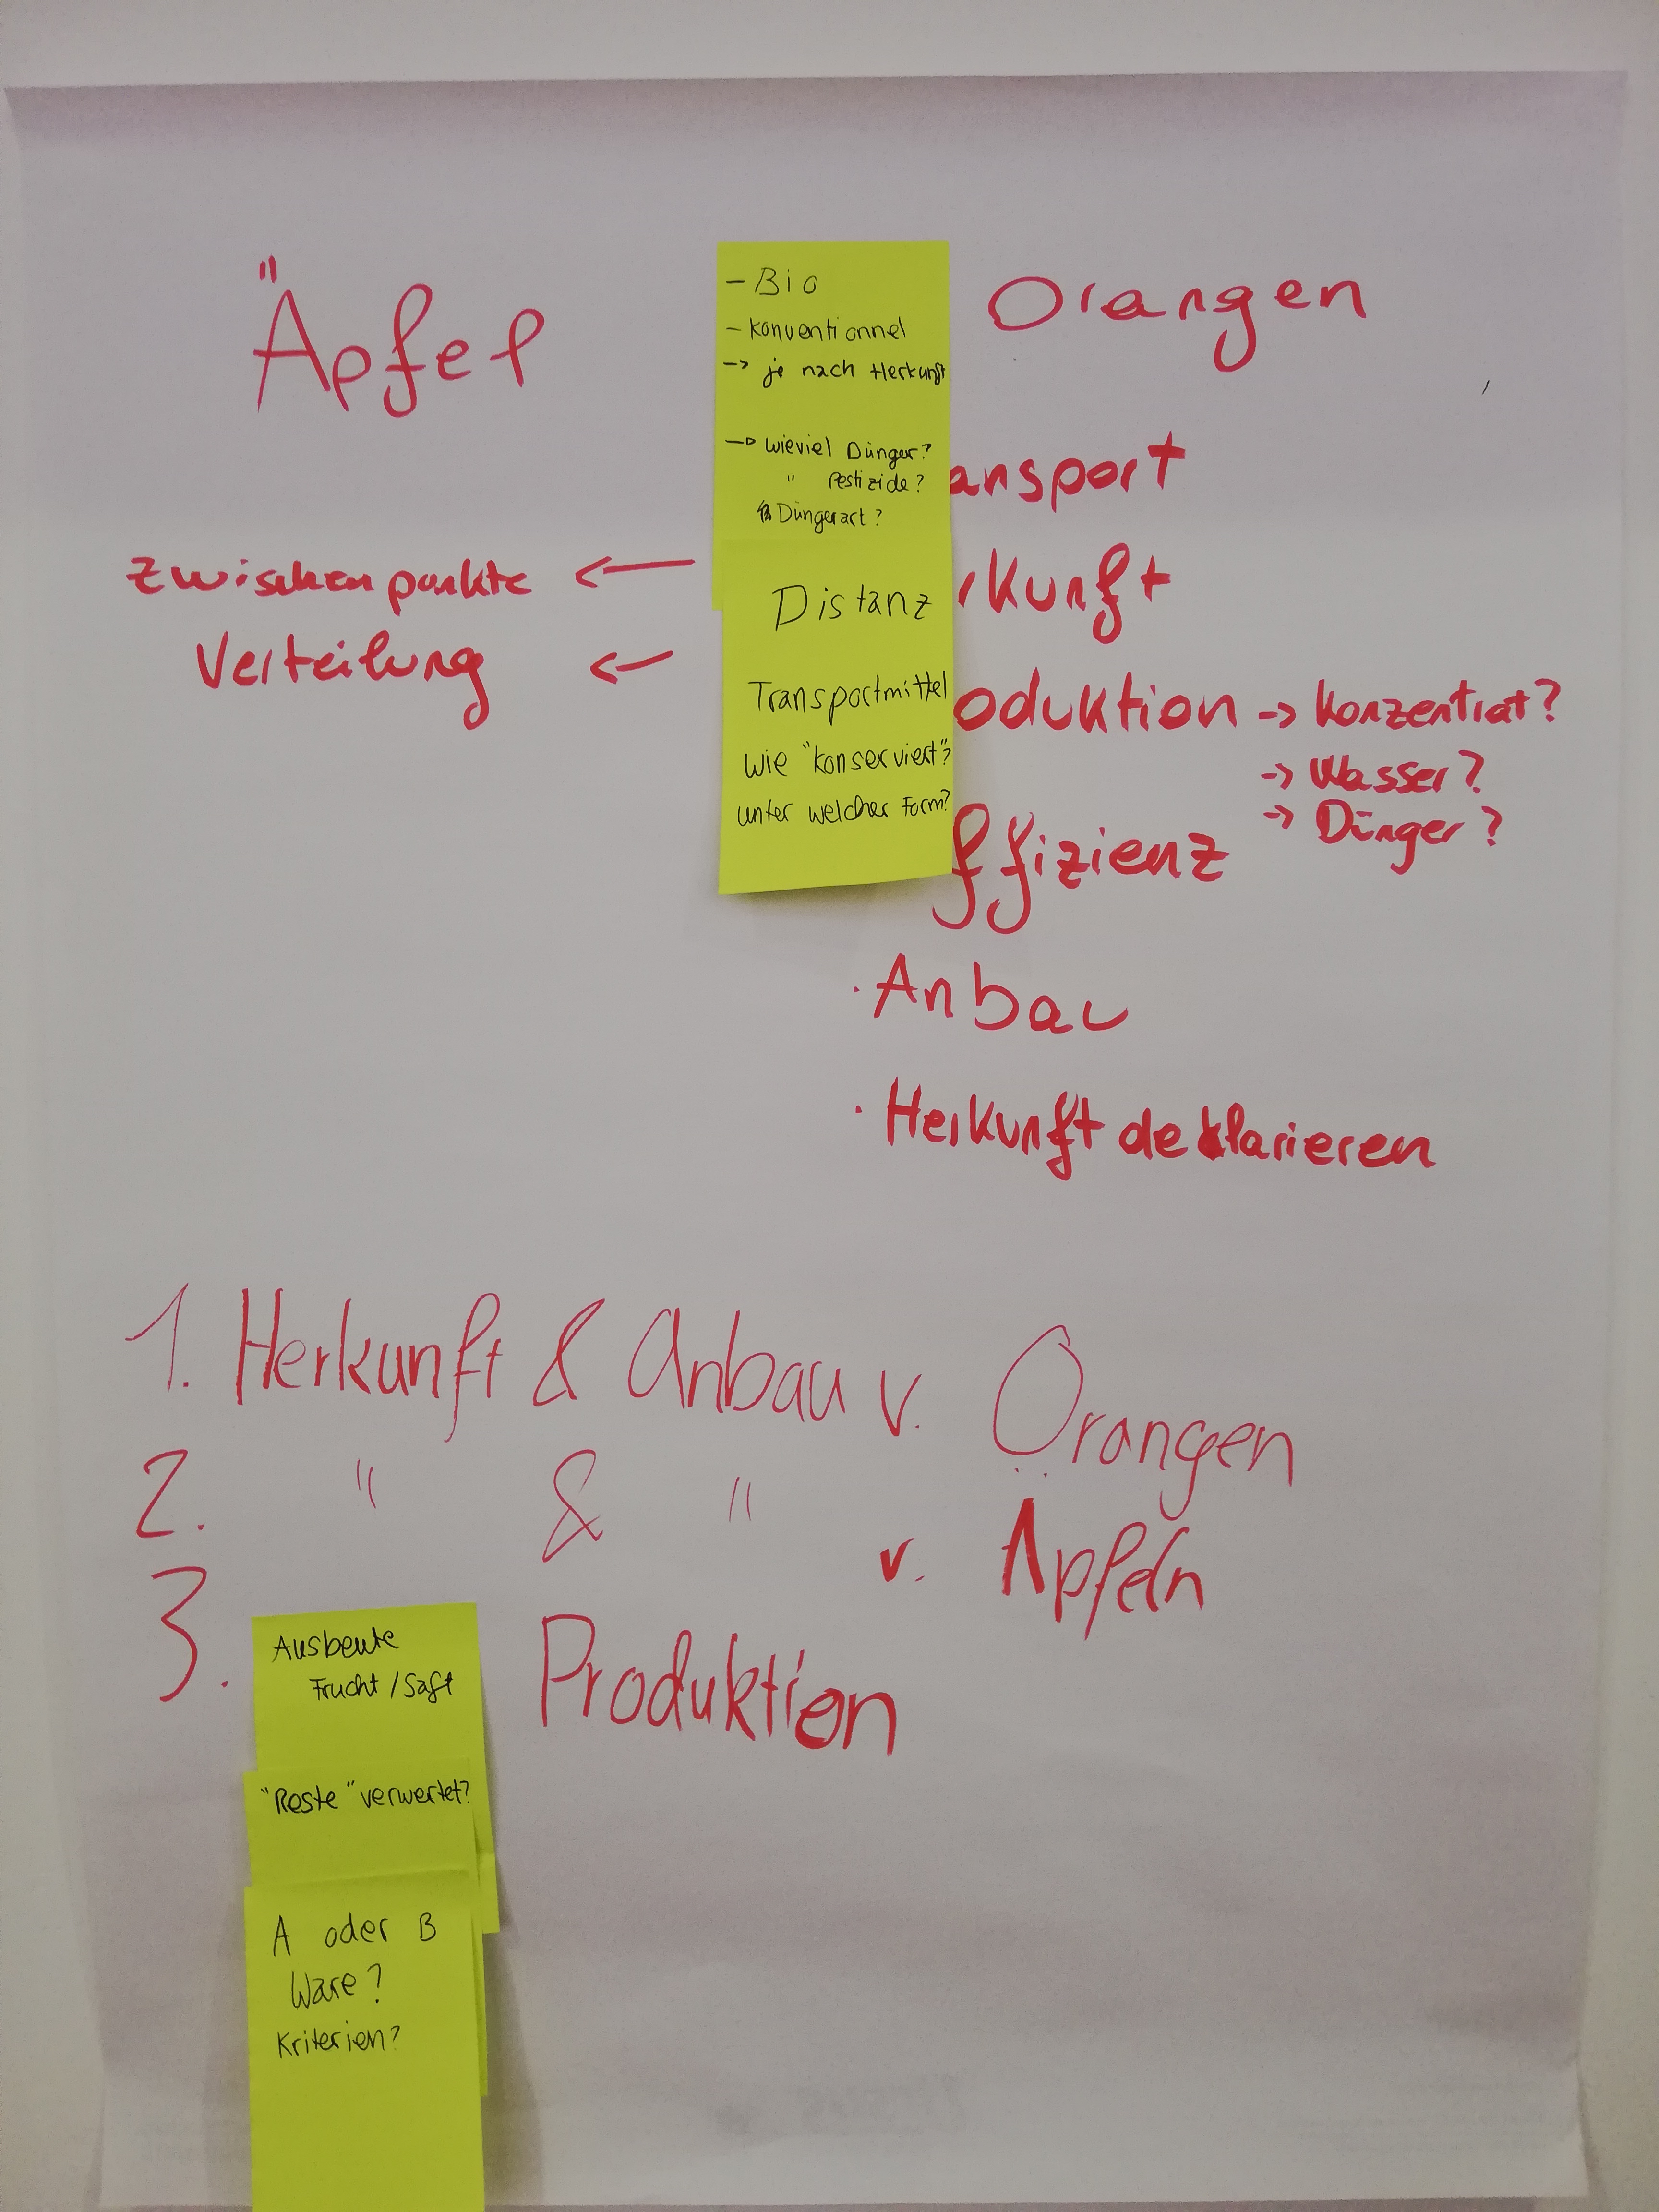 Äpfel
Orangen
- Bio
- Konventionnel
-> je nach Herkunft
-> wieviel Dünger?
" Pestizide?
Düngerart?
ansport
rkunft
oduktion -> Konzentrat?
-> Wasser?
-> Dünger?
ffizienz
· Anbau
· Herkunft deklarieren
Zwischenpunkte <-
Verteilung <-
Distanz
Transportmittel
wie "konserviert"?
unter welcher Form?
1. Herkunft & Anbau v. Orangen
2. " & " v. Äpfeln
3. Produktion
Ausbeute
Frucht / Saft
"Reste" verwertet?
A oder B
Ware?
Kriterien?